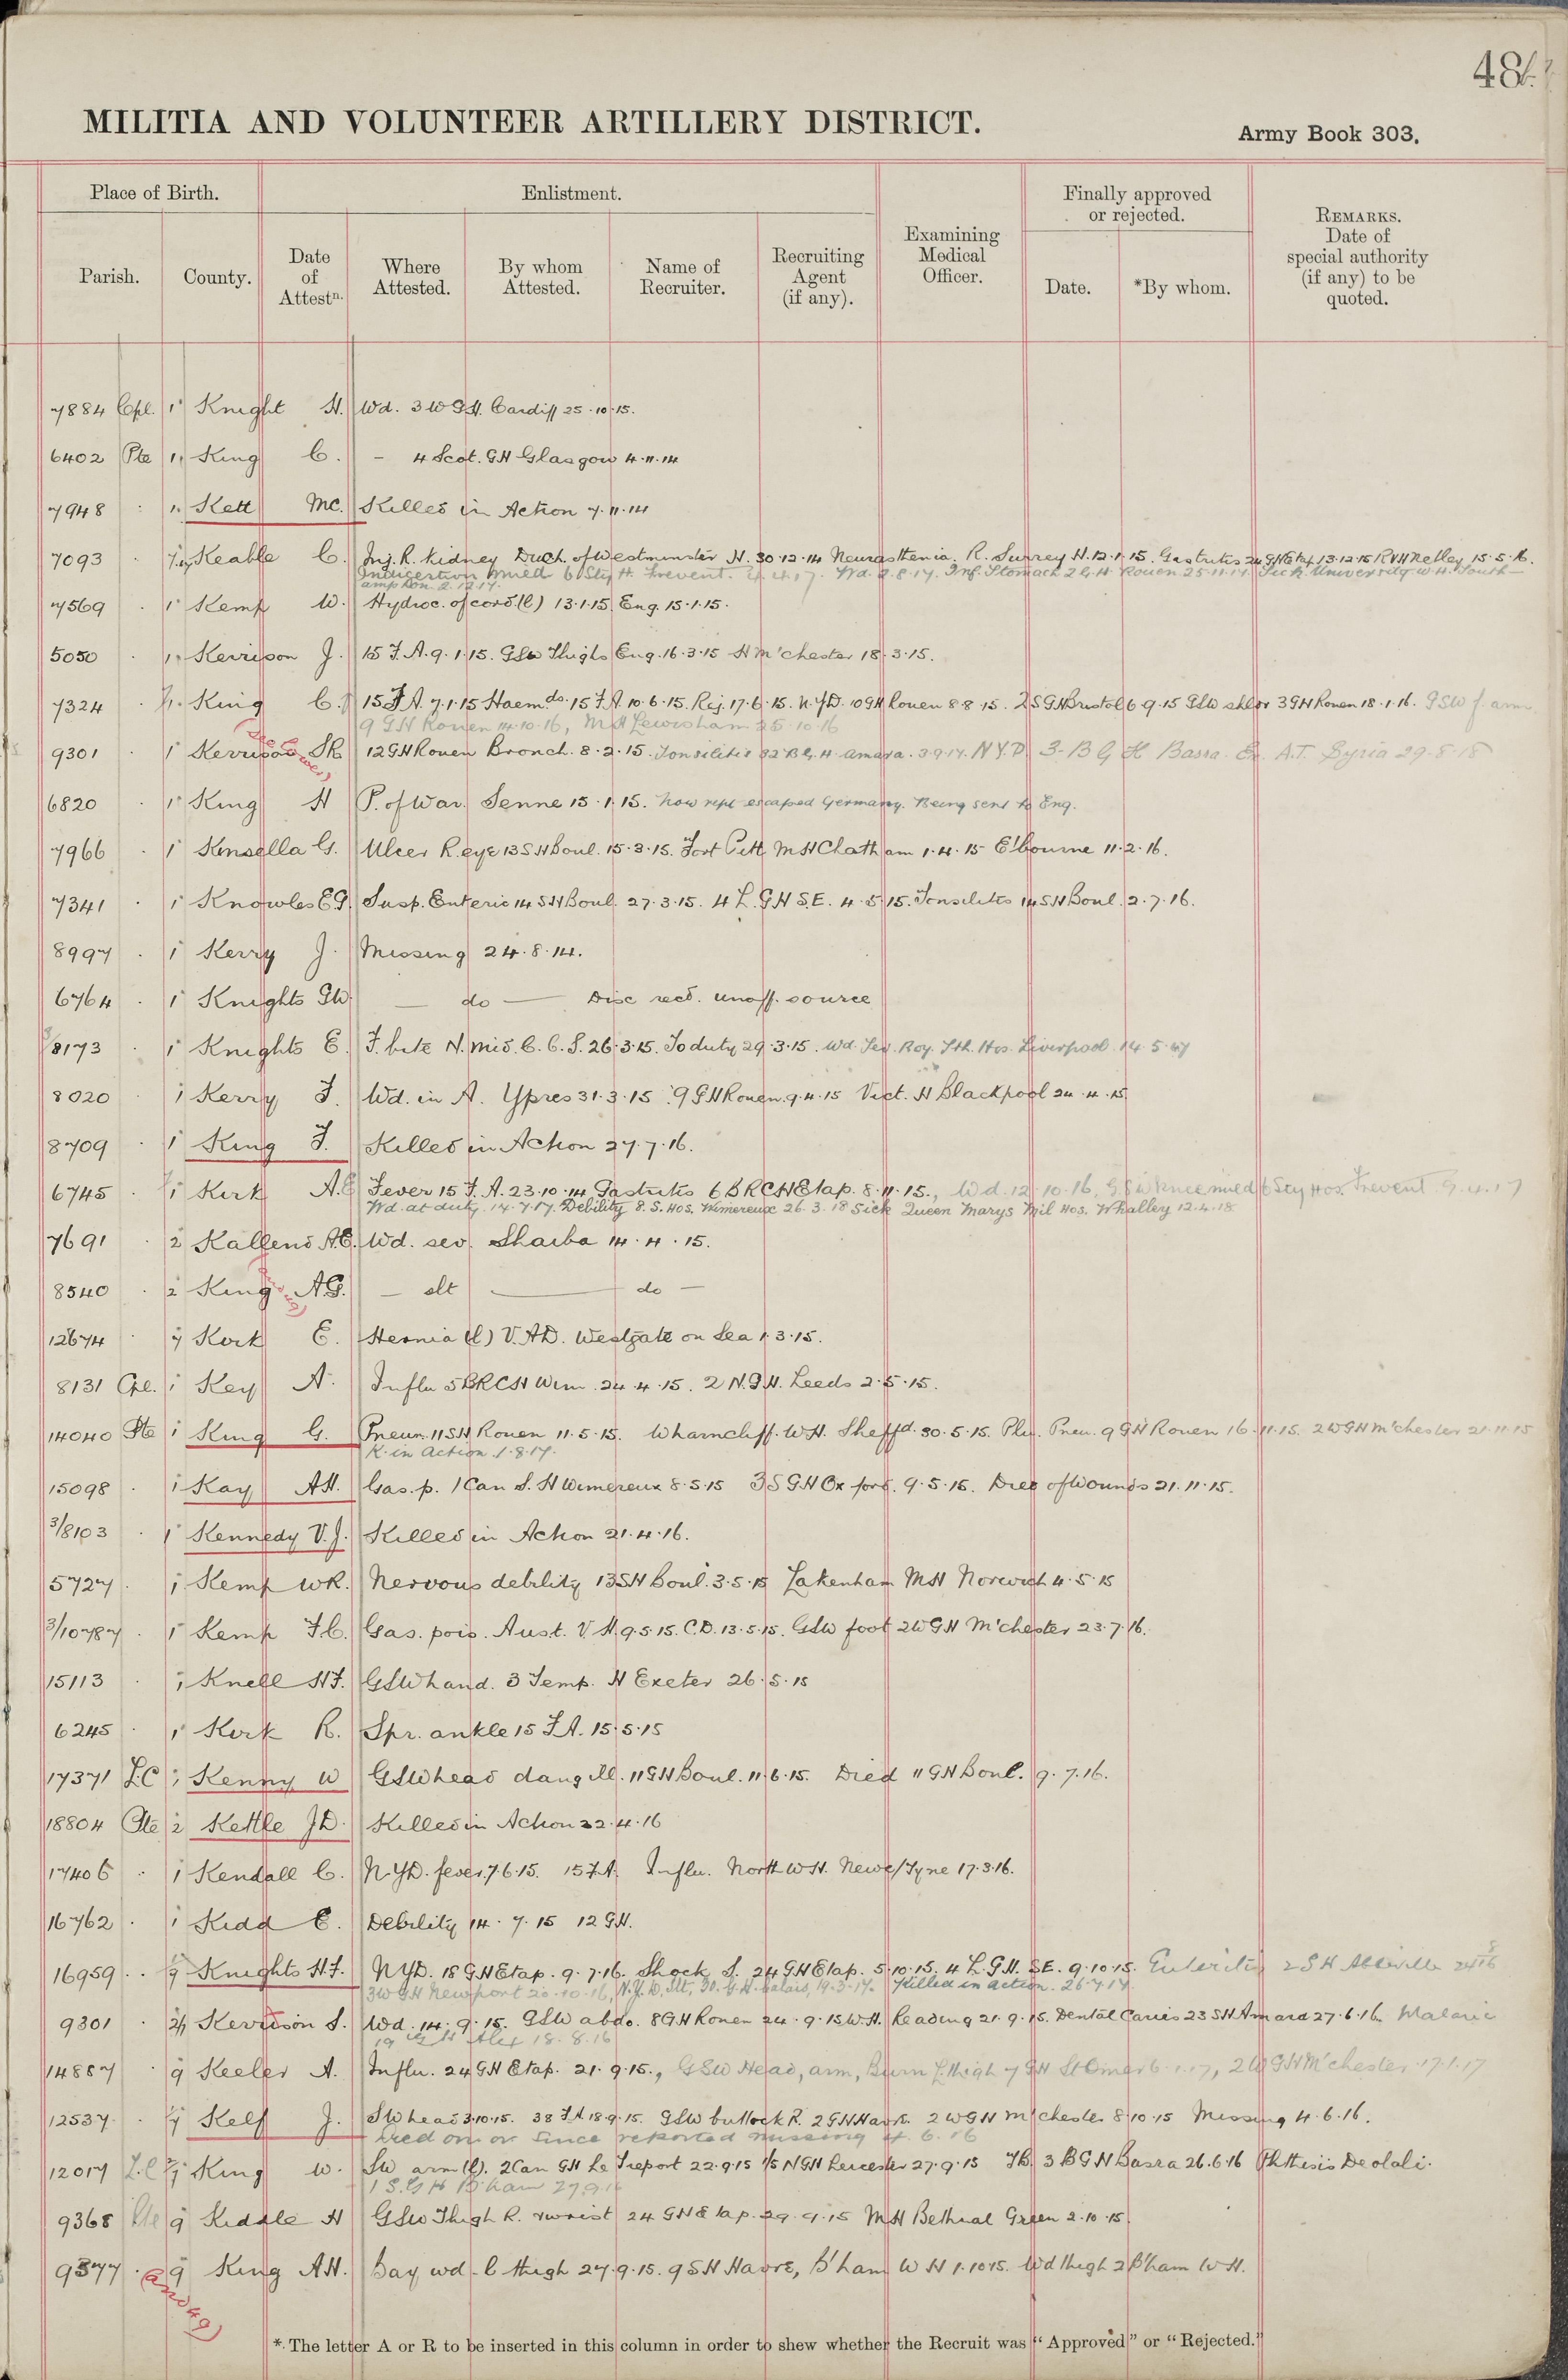 48
MILITIA AND VOLUNTEER ARTILLERY DISTRICT.
Army Book 303.
Place of Birth.
Enlistment.
Finally approved
or rejected.
Parish.
County.
Date
of
Attestn.
Where
Attested.
By whom
Attested.
Name of
Recruiter.
Recruiting
Agent
(if any).
Examining
Medical
Officer.
Date.
*By whom.
REMARKS.
Date of
special authority
(if any) to be
quoted.
7884 Cpl. 1 Knight H. Wd. 3 W G H. Cardiff 25.10.15.
6402 Pte 1 King C. – 4 Scot. GH Glasgow 4.11.14
7948 . 1 Kett MC. Killed in Action 7.11.14
7093 . Keable C. Inj. R. Kidney Duch. of Westminster H. 30.12.14 Neurasthenia. R. Surrey H. 12.1.15. Gastritis 24 GH Etap 13.12.15 RVH Netley 15.5.16.
Indigestion mild 6 Sty H. Frevent. 4.17. Wd. 2.8.17. Inf. Stomach 2 G.H. Rouen 25.11.17 Sick University W.H. South-
ampton. 2.12.17.
7569 . 1 Kemp W. Hydroc. of cord (l) 13.1.15 Eng. 15.1.15.
5050 . 1 Kerrison J. 15 F.A. 9.1.15. GSW Thighs Eng. 16.3.15 H M'chester 18.3.15.
7324 . King C. 15 F A 7.1.15 Haemds. 15 F A 10.6.15. Rej. 17.6.15. N.Y.D. 10 GH Rouen 8.8.15. 2 S GH Bristol 6.9.15 GSW shldr 3 GH Rouen 18.1.16. GSW f. arm
9 GH Rouen 14.10.16, M H Lewisham 25.10.16
9301 . 1 Kerrison SR 12 GH Rouen Bronch. 8.2.15. Tonsilitis 32 B.G.H. Amara. 3.9.17. N.Y.D. 3-B G H Basra. A.T. Syria 29.8.18
6820 . 1 King H P. of War Senne 15.1.15. Now rept escaped Germany. Being sent to Eng.
7966 . 1 Kinsella G. Ulcer R. eye 13 S H Boul. 15.3.15. Fort Pitt M H Chatham 1.4.15 E'bourne 11.2.16.
7341 . 1 Knowles E.G. Susp. Enteric 14 S H Boul. 27.3.15. 4 L. G H S.E. 4.5.15. Tonsilitis 14 S H Boul. 2.7.16.
8997 . 1 Kerry J. Missing 24.8.14.
6764 . 1 Knights GW. — do — Disc recd. unoff. source
3/8173 . 1 Knights E. F. bite N. Mid. C.C.S. 26.3.15. To duty 29.3.15. Wd. Sev. Roy. Sth. Hos. Liverpool. 14.5.17
8020 . 1 Kerry F. Wd. in A. Ypres 31.3.15 9 GH Rouen 9.4.15 Vict. H Blackpool 24.4.15
8709 . 1 King F. Killed in Action 27.7.16.
6745 . 1 Kirk A.E Fever 15 F.A. 23.10.14 Gastritis 6 B R C H Etap. 8.11.15., Wd. 12.10.16, GSW knee mild 6 Sty Hos. Frevent 9.4.17
Wd. at duty. 14.7.17. Debility 8. S. Hos. Wimereux 26.3.18 Sick Queen Marys Mil Hos. Whalley 12.4.18
7691 . 2 Kallend A.E. Wd. sev. Shaiba 14.4.15.
8540 . 2 King A.G. — slt — do —
12674 . 7 Kirk E. Hernia (l) V.A.D. Westgate on Sea 1.3.15.
8131 Cpl. 1 Key A. Influ 5 B R C H Wim. 24.4.15. 2 N.G.H. Leeds 2.5.15.
14040 Pte 1 King G. Pneum. 11 S H Rouen 11.5.15. Wharncliff. W.H. Sheffd. 30.5.15. Pneu. 9 GH Rouen 16.11.15. 2 W GH M'chester 21.11.15
K. in Action. 1.8.17.
15098 . 1 Kay A.H. Gas. p. 1 Can S. H Wimereux 8.5.15 3 S G H Oxford. 9.5.15. Died of Wounds 21.11.15.
3/8103 . 1 Kennedy V.J. Killed in Action 21.4.16.
5727 . 1 Kemp WR. Nervous debility 13 S H Boul. 3.5.15 Lakenham M H Norwich 4.5.15
3/10787 . 1 Kemp F.C. Gas. pois. Aust. V. H. 9.5.15. C.D. 13.5.15. GSW foot 2 W G H M'chester 23.7.16.
15113 . 1 Knell H.F. GSW hand. 3 Temp. H Exeter 26.5.15
6245 . 1 Kirk R. Spr. ankle 15 F.A. 15.5.15
17371 L.C 1 Kenny W GSW head dang ill. 11 GH Boul. 11.6.15. Died 11 GH Boul. 9.7.16.
18804 Pte 2 Kettle J.D. Killed in Action 22.4.16
17406 . 1 Kendall C. N.Y.D. fever. 7.6.15. 15 F.A. Influ. North W H. Newc/Tyne 17.3.16.
16762 . 1 Kidd E. Debility 14.7.15 12 G.H.
16959 . . 9 Knights H.F. NYD. 18 GH Etap. 9.7.16. Shock, S. 24 GH Etap. 5.10.15, 4 L.G.H. S.E. 9.10.15. Enteritis 2 S H Abbeville
3 W GH Newport 20.10.16, N.Y.D. slt, 30. G.H. Calais, 19.3.17. Killed in action. 26.7.17
9301 . Kerrison S. Wd. 14.9.15. GSW abdo. 8 GH Rouen 24.9.15 W.H. Reading 21.9.15. Dental Caries 23 S H Amara 27.6.16. Malaria
19 G H Alex 18.8.16
14887 . 9 Keeler A. Influ. 24 GH Etap. 21.9.15., GSW Head, arm, Burn L. thigh 7 GH St Omer 6.1.17, 2 W GH M'chester. 17.1.17
12537 . 7 Kelf J. SW head 3.10.15. 38 F.A 18.9.15. GSW buttock R. 2 GH Havre. 2 W GH M'chester 8.10.15 Missing 4.6.16.
Died on or since reported missing 4.6.16
12017 L.C 7 King W. SW arm (l). 2 Can GH Le Treport 22.9.15 1/5 N GH Leicester 27.9.15 TB. 3 B G H Basra 26.6.16 Phthisis Deolali.
1 S. G H B'ham 27.9.16
9368 Pte 9 Kiddle H GSW Thigh R. & wrist 24 GH Etap. 29.9.15 M H Bethnal Green 2.10.15
9377 . 9 King A.H. Bay wd. l thigh 27.9.15. 9 S H Havre, B'ham W H 1.10.15. Wd thigh 2 B'ham W H.
*. The letter A or R to be inserted in this column in order to shew whether the Recruit was "Approved" or "Rejected."